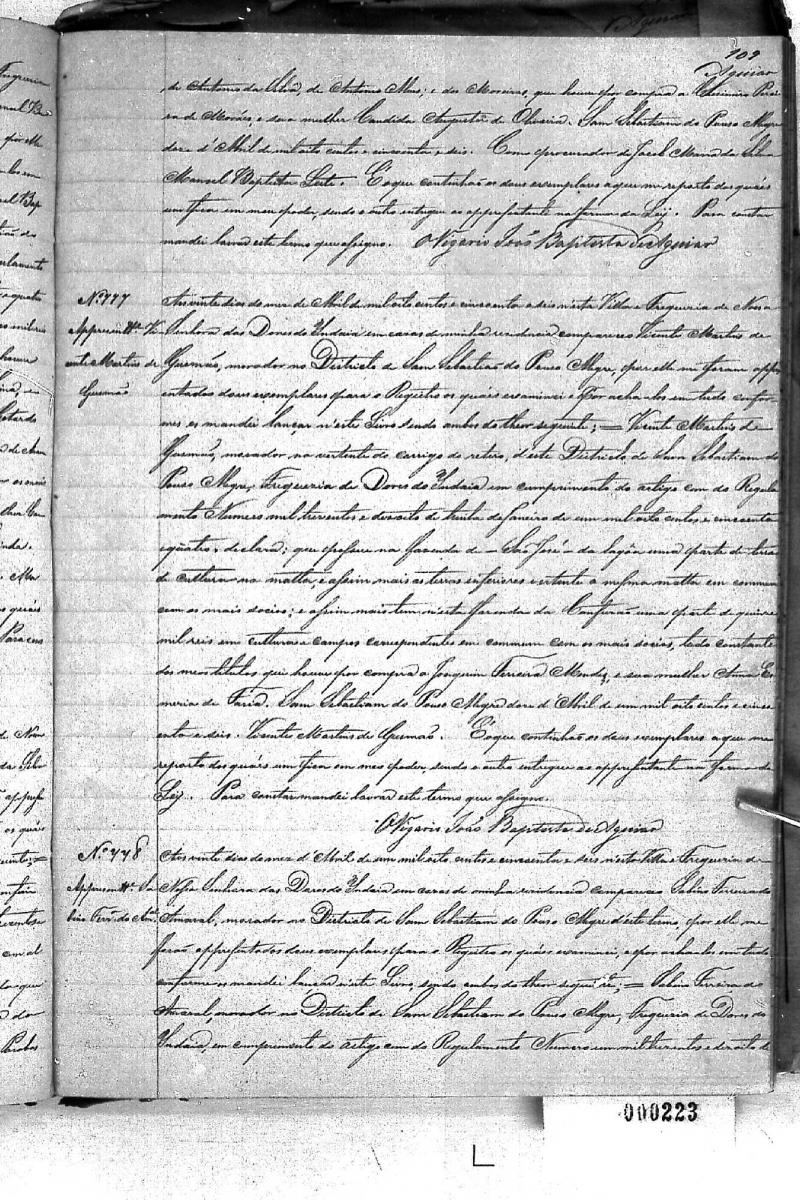 109
Aguiar
de Antonio da Silva, de Antonio Mus; e dos Moreiras, que houve por compra a Casimiro Perei
ra de Moráes, e sua mulher Candida Augusta de Oliveira. Sam Sebastiam do Pouso Alegre
doze d'Abril de mil oito centos e cincoenta e seis. Como procurador de Jacob Maria da Silva
Manoel Baptista Leite. E o que continhão os dous exemplares a que me reporto dos quáes
um fica em meu poder, sendo o outro entregue ao appresentante na forma da Lej. Para constar
mandei lavrar este termo que assigno. O Vigario João Baptista de Aguiar
Nº 777
Aos vinte dias do mez de Abril de mil oito centos e cincoenta e seis n'esta Villa e Fregueria de Nossa
Appresentte. Vi
Senhora das Dores do Indaiá em casas de minha rezidencia compareceo Vicente Martins de
cente Martins de
Gusmão, morador no Districto de Sam Sebastião do Pouso Alegre, e por elle me foram appre
Gusmão
sentados dous exemplares para o Registro os quáes examinei e por acha-los em tudo confor-
mes os mandei lançar n'este Livro sendo ambos do theor seguinte; = Vicente Martins de
Gusmão, morador na vertente do corrigo do retiro, d'este Districto de Sam Sebastiam do
Pouso Alegre, Fregueria de Dores do Indaiá em cumprimento do artigo cem do Regula
mento Numero mil trezentos e dezoito de trinta de Janeiro de um mil oito centos e cincoenta
e quatro, declara: que possue na fazenda de - São José - da lagôa uma parte de terras
de cultura na matta, e assim mais as terras inferiores e vertente a mesma matta em commum
com os mais socios; e assim mais tem n'esta fazenda da Confusão uma parte de quinze
mil reis em culturas e campos correspondentes em commum com os mais socios, tudo constante
dos meos titulos que houve por compra a Joaquim Ferreira Mendes, e sua mulher Anna Es
meria de Faria. Sam Sebastiam do Pouso Alegre doze d'Abril de um mil oito centos e cinco
enta e seis. Vicente Martins de Gusmão. E o que continhão os dous exemplares a que me
reporto dos quáes um fica em meo poder, sendo o outro entregue ao appresentante na forma da
Lej. Para constar mandei lavrar este termo que assigno.
O Vigario João Baptista de Aguiar
Nº 778
Aos vinte dias do mez d'Abril de um mil oito centos e cincoenta e seis n'esta Villa e Fregueria de
Appresentte. Sa
Nossa Senhora das Dores do Indaiá em casas de minha rezidencia compareceo Sabino Ferreira do
bino Ferra. do Amal.
Amaral, morador no Districto de Sam Sebastiam do Pouso Alegre d'este termo, e por elle me
forão appresentados dous exemplares para o Registro os quáes examinei, e por acha-los em tudo
conforme os mandei lançar n'este Livro, sendo ambos do theor seguinte; = Sabino Ferreira do
Amaral, morador no Districto de Sam Sebastiam do Pouso Alegre, Fregueria de Dores do
Indaiá, em cumprimento do artigo cem do Regulamento Numero um mil trezentos e dezoito de
000223